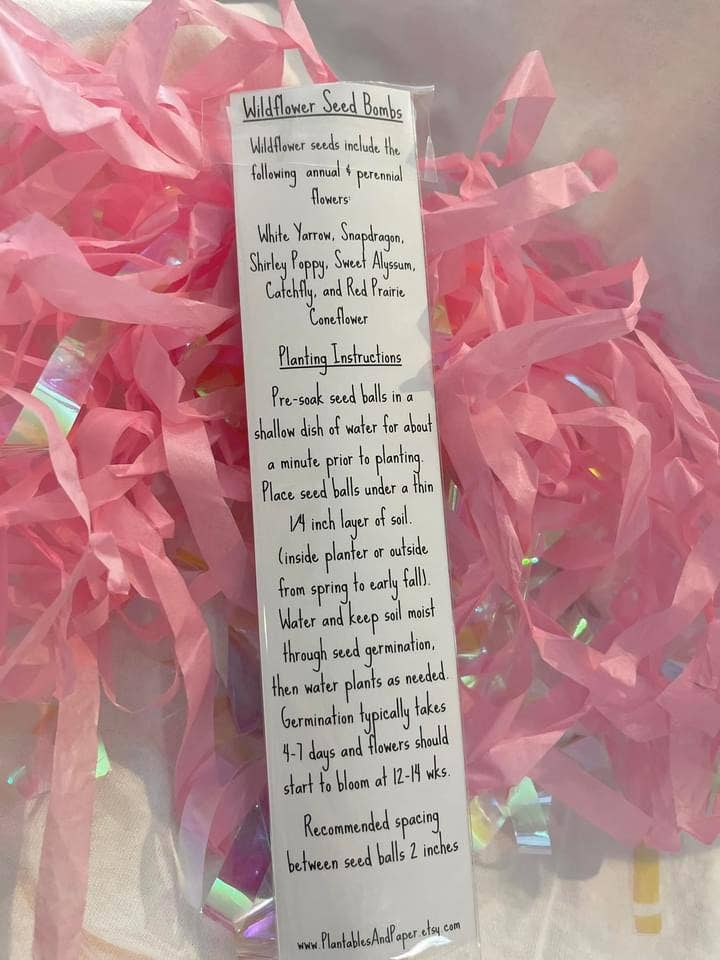 Wildflower Seed Bombs
Wildflower seeds include the
following annual & perennial
flowers:
White Yarrow, Snapdragon,
Shirley Poppy, Sweet Alyssum,
Catchfly, and Red Prairie
Coneflower
Planting Instructions
Pre-soak seed balls in a
shallow dish of water for about
a minute prior to planting.
Place seed balls under a thin
1/4 inch layer of soil.
(inside planter or outside
from spring to early fall).
Water and keep soil moist
through seed germination,
then water plants as needed.
Germination typically takes
4-7 days and flowers should
start to bloom at 12-14 wks.
Recommended spacing
between seed balls 2 inches
www.PlantablesAndPaper.etsy.com